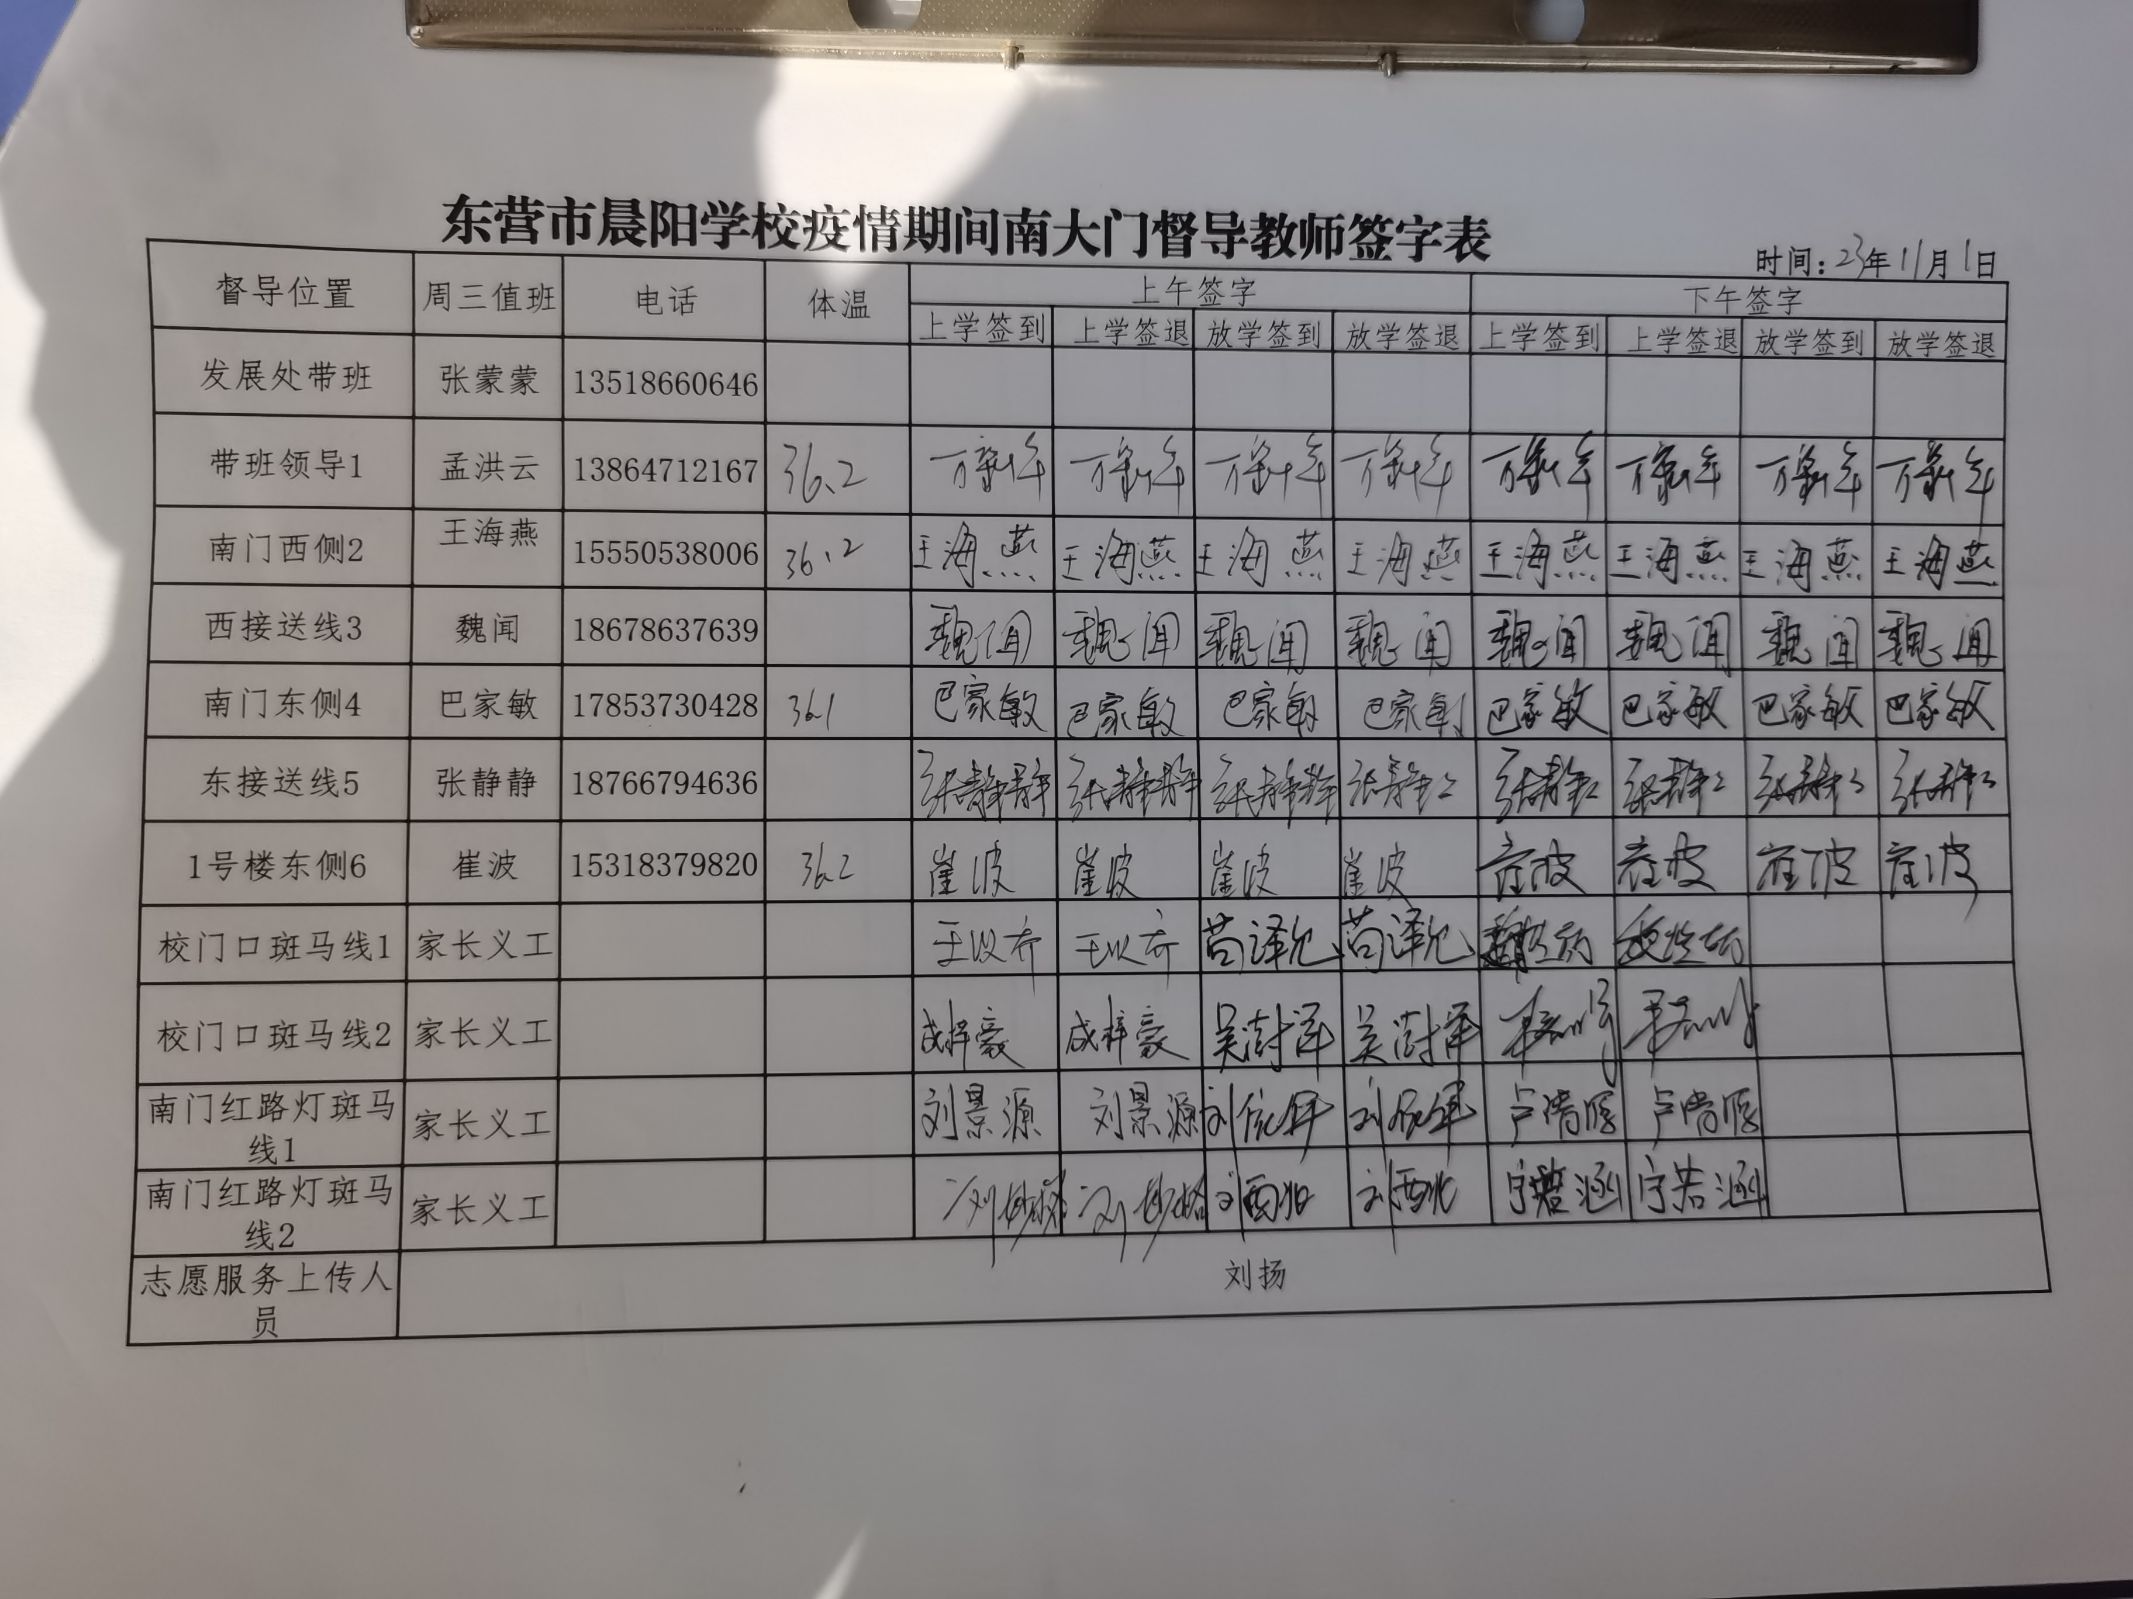 东营市晨阳学校疫情期间南大门督导教师签字表
时间：23年11月1日
督导位置 周三值班 电话 体温 上午签字 下午签字
上学签到 上学签退 放学签到 放学签退 上学签到 上学签退 放学签到 放学签退
发展处带班 张蒙蒙 13518660646
带班领导1 孟洪云 13864712167 36.2
南门西侧2 王海燕 15550538006 36.2 王海燕 王海燕 王海燕 王海燕 王海燕 王海燕 王海燕 王海燕
西接送线3 魏闻 18678637639 魏闻 魏闻 魏闻 魏闻 魏闻 魏闻 魏闻 魏闻
南门东侧4 巴家敏 17853730428 36.1 巴家敏 巴家敏 巴家敏 巴家敏 巴家敏 巴家敏 巴家敏 巴家敏
东接送线5 张静静 18766794636 张静静 张静静 张静静 张静2 张静2 张静2 张静2 张静2
1号楼东侧6 崔波 15318379820 36.2 崔波 崔波 崔波 崔波 崔波 崔波 崔波 崔波
校门口斑马线1 家长义工
校门口斑马线2 家长义工 成梓豪 成梓豪 吴澍泽 吴澍泽
南门红路灯斑马线1 家长义工 刘景源 刘景源
南门红路灯斑马线2 家长义工 宁若涵 宁若涵
志愿服务上传人员 刘扬